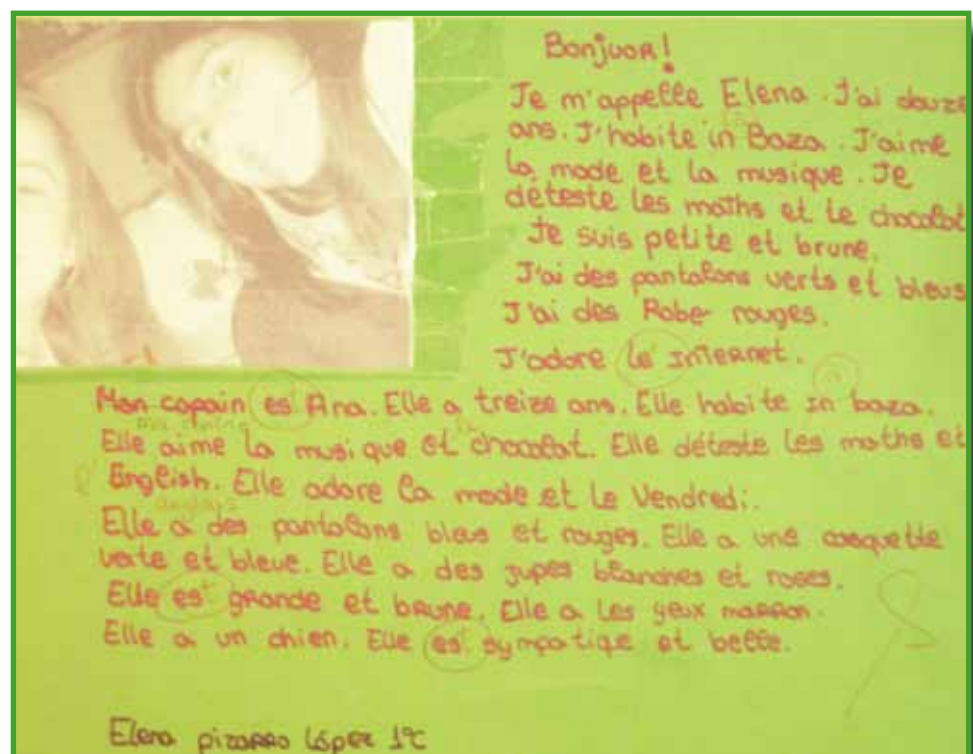 Bonjuor!
Je m'appelle Elena. J'ai douze
ans. J'habite in Baza. J'aime
la mode et la musique. Je
déteste les maths et le chocolat
Je suis petite et brune.
J'ai des pantalons verts et bleus
J'ai des Robe rouges.
J'adore le internet.
Mon copain es Ana. Elle a treize ans. Elle habite in baza.
Elle aime la musique et chocolat. Elle déteste les maths et
l' English. Elle adore la mode et le Vendredi.
anglais
Elle a des pantalons bleus et rouges. Elle a une casquette
verte et bleue. Elle a des jupes blanches et roses.
Elle es grande et brune. Elle a les yeux marron.
Elle a un chien. Elle es sympatique et belle.
Elena pizarro López 1ºC